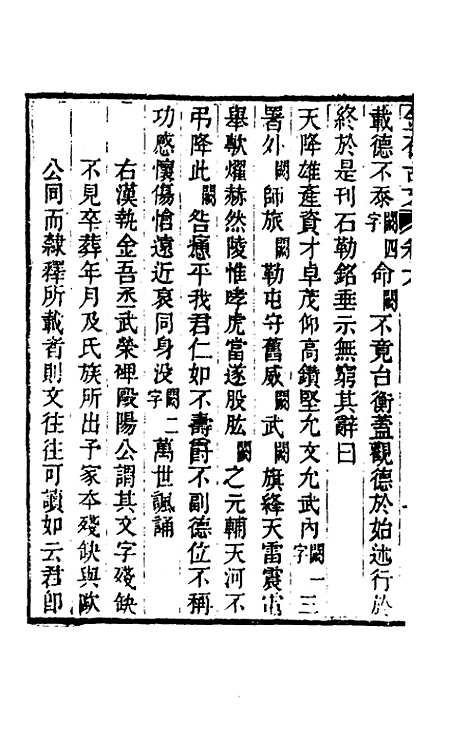 載德不忝闕四字命闕不竟台衡蓋觀德於始述行於
終於是刊石勒銘垂示無窮其辭曰
天降雄產資才卓茂仰高鑽堅允文允武內闕一字三
署外闕師旅闕勒屯守舊威闕武闕旗絳天雷震電
舉歍燿赫然陵惟哮虎當遂股肱闕之元輔天河不
弔降此闕咎乎我君仁如不壽爵不副德位不稱
功感懷傷愴遠近哀同身没闕二字萬世諷誦
右漢執金吾丞武榮碑歐陽公謂其文字殘缺
不見卒葬年月及氏族所出予家本殘缺與歐
公同而隸釋所載者則文往往可讀如云君即